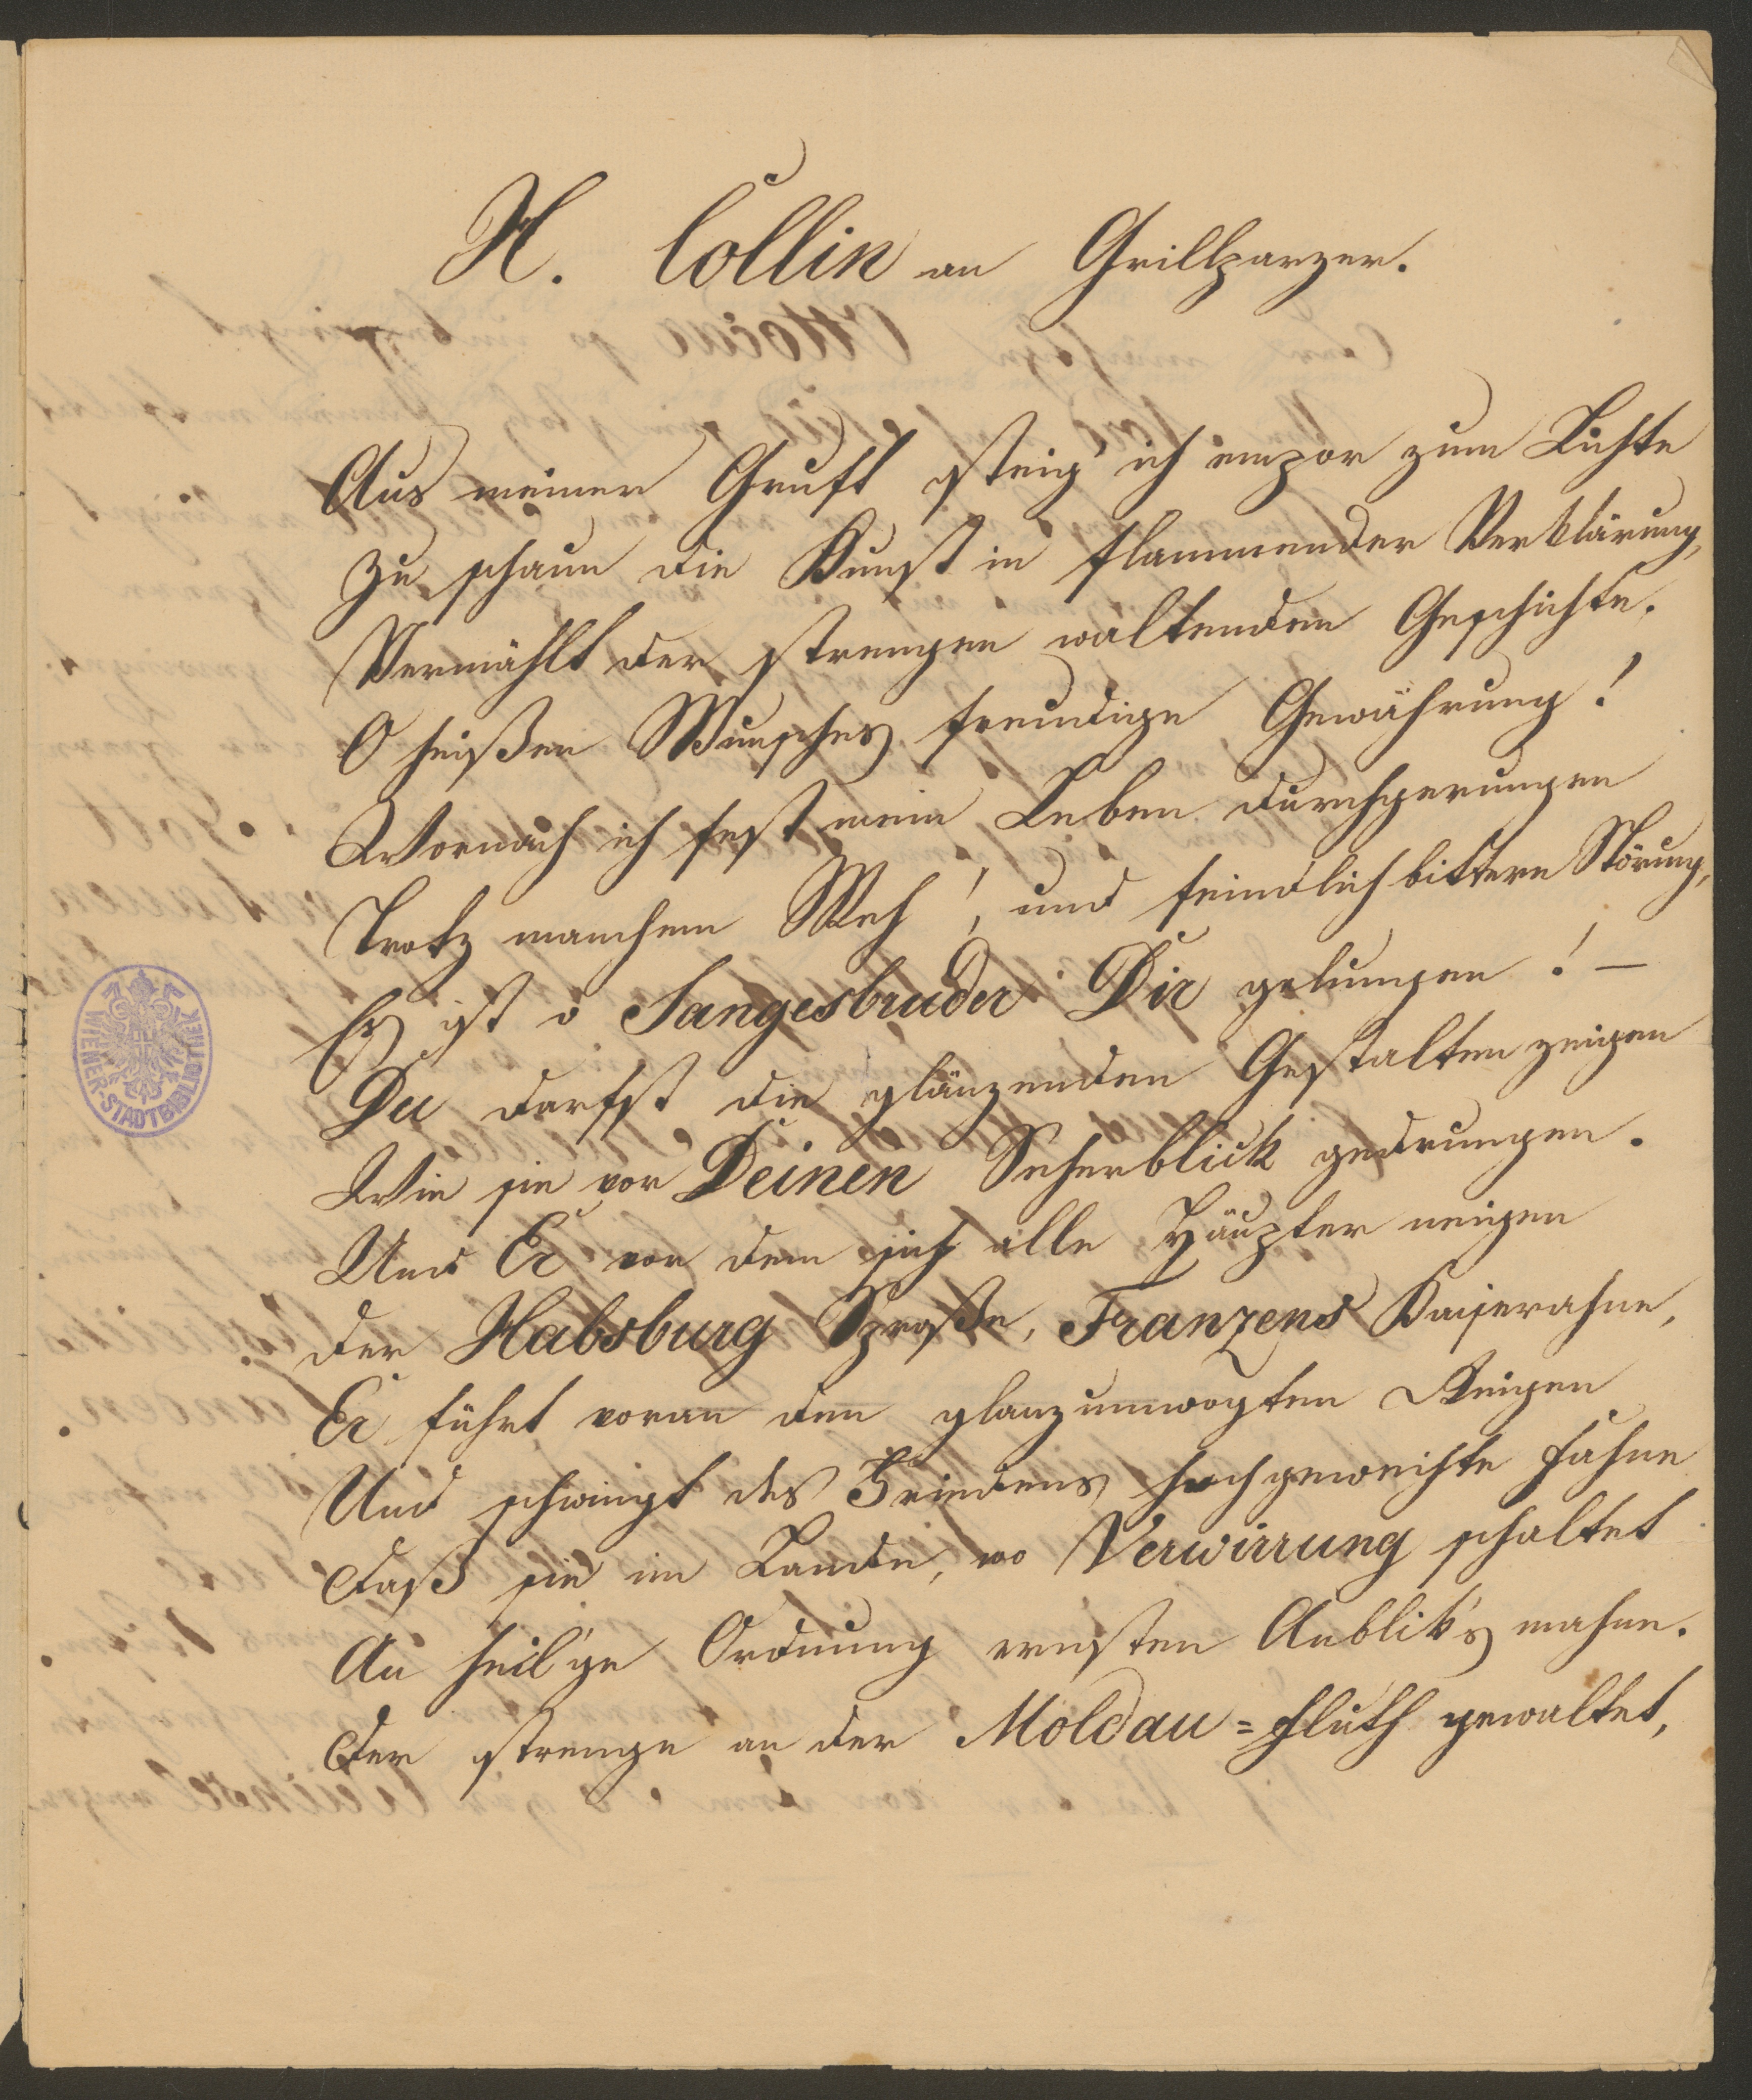 H. Collin an Grillparzer.
Aus meiner Gruft steig' ich empor zum Lichte
Zu schaun die Kunst in flammender Verklärung,
Vermählt der strengen waltenden Geschichte.
O heißen Wunsches freudige Gewährung!
Wornach ich fest mein Leben durchgerungen
Trotz manchem Weh!, und feindlich bittere Störung,
Es ist o Sangesbruder Dir gelungen! —
Du darfst die glänzenden Gestalten zeigen
Wie sie vor Deinen Seherblick gedrungen.
Und Er vor dem sich alle Häupter neigen
der Habsburg Sproße, Franzens Kaiserahne,
Er führt voran den glanzumwogten Reigen
Und schwingt des Friedens hochgeweihte Fahne
Daß sie im Lande, wo Verwirrung schaltet
An heil'ge Ordnung ernsten Anblik's mahne.
Der strenge an der Moldau=Fluth gewaltet,
WIENER-STADTBIBLIOTHEK